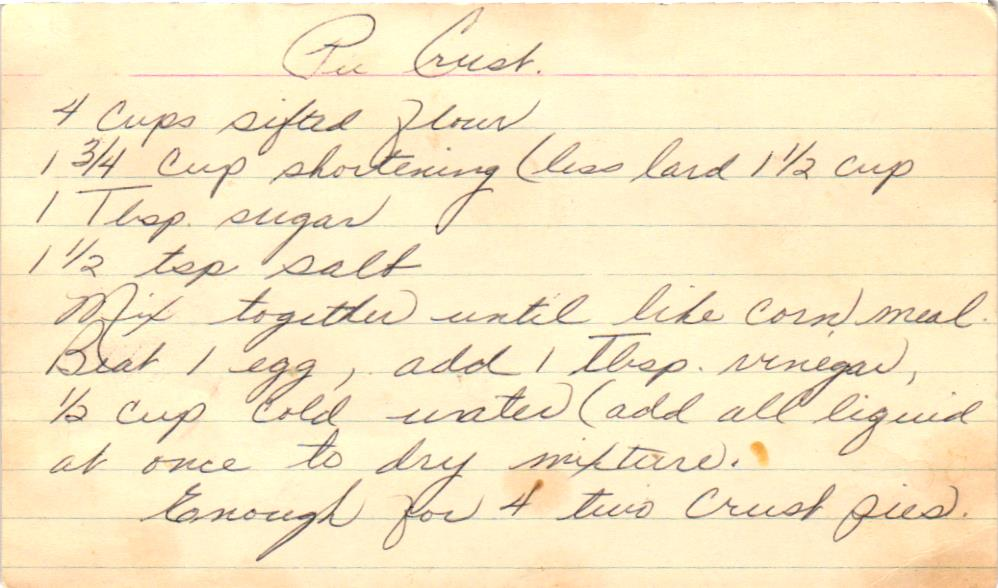 Pie Crust.
4 cups sifted flour
1 3/4 cup shortening (less lard 1 1/2 cup
1 Tbsp. sugar
1 1/2 tsp salt
Mix together until like corn meal.
Beat 1 egg, add 1 Tbsp. vinegar,
1/2 cup cold water (add all liquid
at once to dry mixture.
Enough for 4 two crust pies.